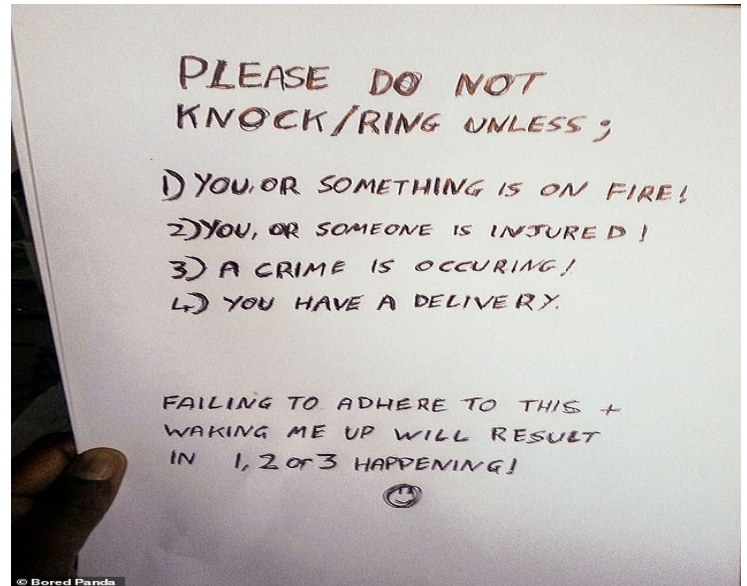 PLEASE DO NOT
KNOCK/RING UNLESS;
1) YOU, OR SOMETHING IS ON FIRE!
2) YOU, OR SOMEONE IS INJURED!
3) A CRIME IS OCCURING!
4) YOU HAVE A DELIVERY.
FAILING TO ADHERE TO THIS +
WAKING ME UP WILL RESULT
IN 1, 2 or 3 HAPPENING!
© Bored Panda